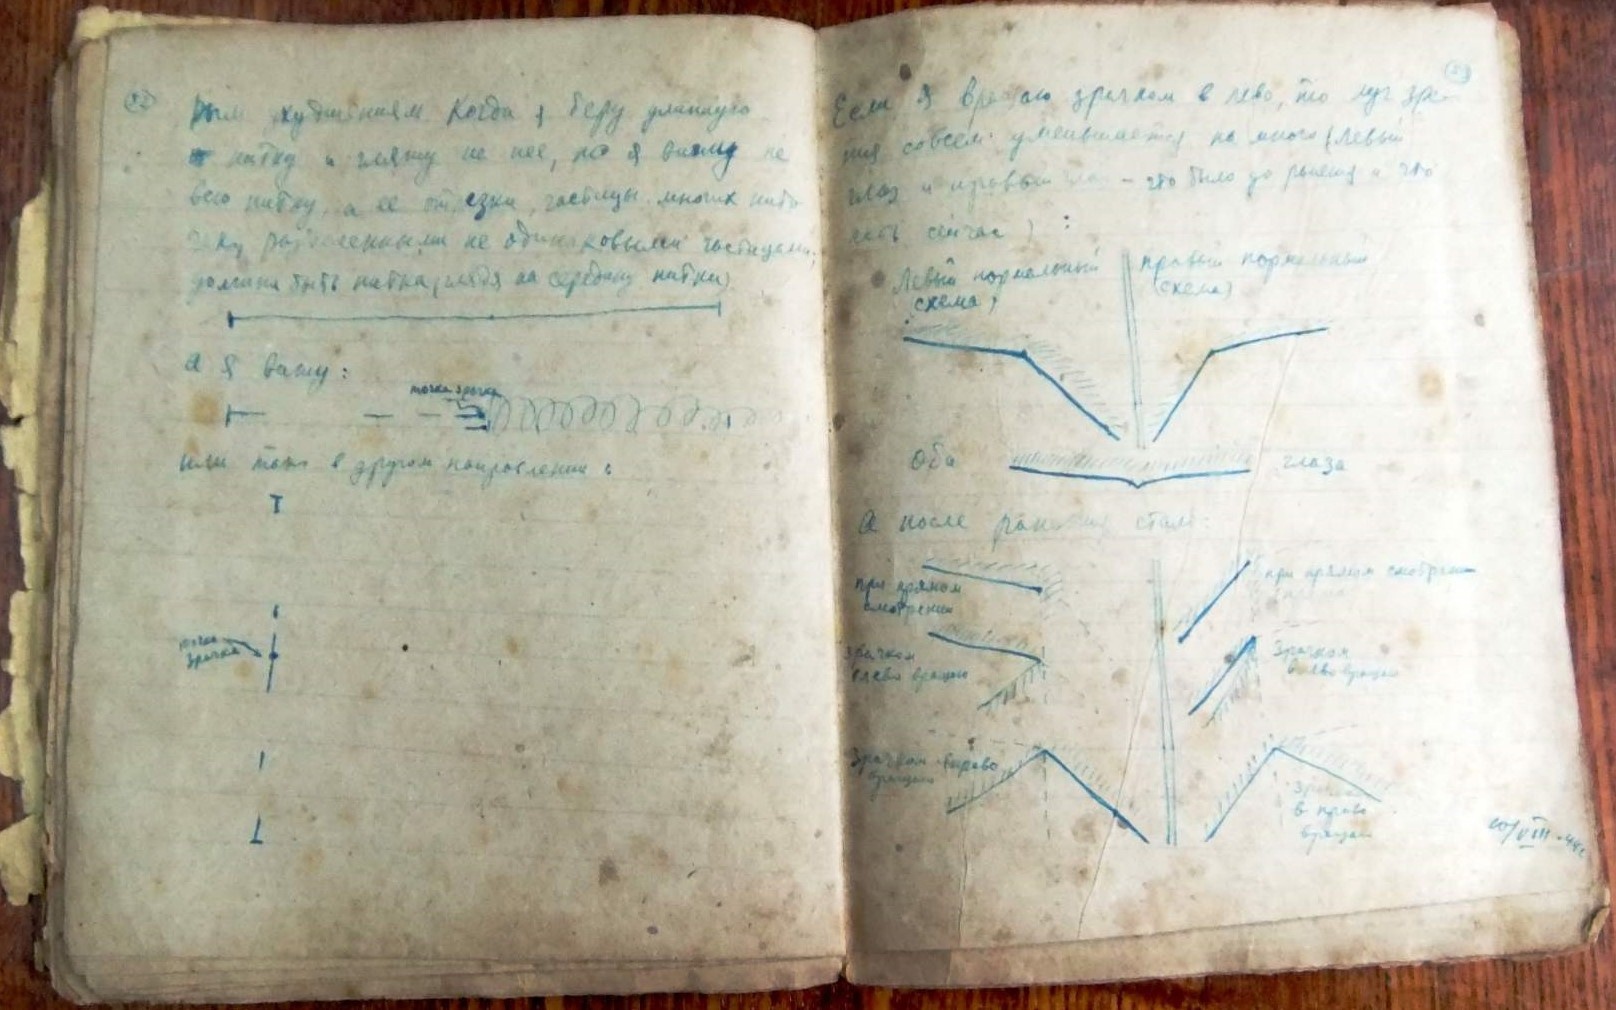 22
Когда я беру длинную
нитку и гляжу на нее, то я вижу не
всю нитку, а ее отрезки, частицы многих
не одинаковыми частицами,
должна быть нитка (глядя на середину нитки)
а я вижу:
точка зрачка
или тоже в другом направлении:
точка
зрачка
Если я вращаю зрачком в лево, то луч зре-
ния совсем уменьшается на много (левый
глаз и правый глаз - что было до ранения и что
есть сейчас) :
Левый нормальный
(схема)
правый нормальный
(схема)
Оба
глаза
А после ранения стало:
при прямом
смотрении
при прямом смотрении
зрачком
влево вращаю
зрачком
в лево вращаю
Зрачком вправо
вращаю
в право
вращаю
VIII